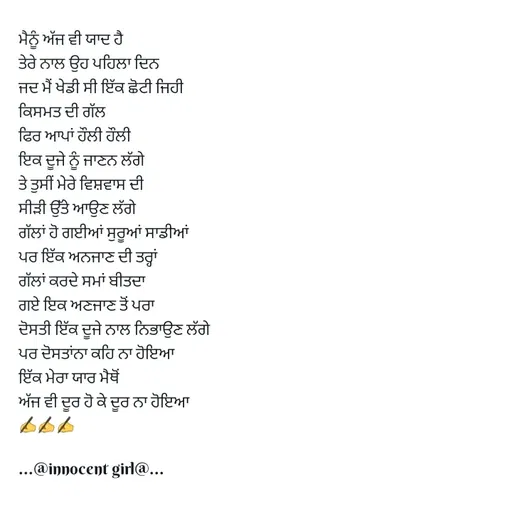 ਮੈਨੂੰ ਅੱਜ ਵੀ ਯਾਦ ਹੈ
ਤੇਰੇ ਨਾਲ ਉਹ ਪਹਿਲਾ ਦਿਨ
ਜਦ ਮੈਂ ਖੇਡੀ ਸੀ ਇੱਕ ਛੋਟੀ ਜਿਹੀ
ਕਿਸਮਤ ਦੀ ਗੱਲ
ਫਿਰ ਆਪਾਂ ਹੌਲੀ ਹੌਲੀ
ਇਕ ਦੂਜੇ ਨੂੰ ਜਾਣਨ ਲੱਗੇ
ਤੇ ਤੁਸੀਂ ਮੇਰੇ ਵਿਸ਼ਵਾਸ ਦੀ
ਸੀੜੀ ਉੱਤੇ ਆਉਣ ਲੱਗੇ
ਗੱਲਾਂ ਹੋ ਗਈਆਂ ਸੁਰੂਆਂ ਸਾਡੀਆਂ
ਪਰ ਇੱਕ ਅਨਜਾਣ ਦੀ ਤਰ੍ਹਾਂ
ਗੱਲਾਂ ਕਰਦੇ ਸਮਾਂ ਬੀਤਦਾ
ਗਏ ਇਕ ਅਣਜਾਣ ਤੋਂ ਪਰਾ
ਦੋਸਤੀ ਇੱਕ ਦੂਜੇ ਨਾਲ ਨਿਭਾਉਣ ਲੱਗੇ
ਪਰ ਦੋਸਤਾਂਨਾ ਕਹਿ ਨਾ ਹੋਇਆ
ਇੱਕ ਮੇਰਾ ਯਾਰ ਮੈਥੋਂ
ਅੱਜ ਵੀ ਦੂਰ ਹੋ ਕੇ ਦੂਰ ਨਾ ਹੋਇਆ
✍️✍️✍️
...@innocent girl@...